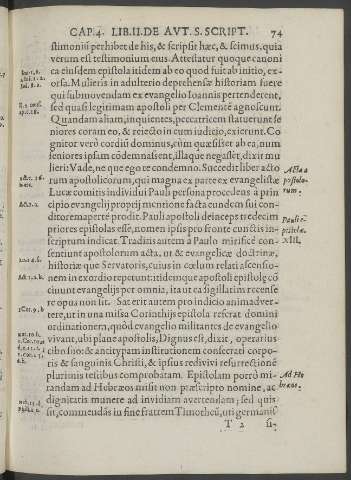 CAP.4. LIB.II. DE AVT. S. SCRIPT. 74
stimoniũ perhibet de his, & scripsit hæc, & scimus, quia
verum est testimonium eius. Attestatur quoque canoni
ca eiusdem epistola itidem ab eo quod fuit ab initio, ex-
orsa. Mulieris in adulterio deprehensæ historiam fuere
qui submouendam ex evangelio Ioannis pertenderent,
sed quasi legitimam apostoli per Clementẽ agnoscunt.
Quandam aliam, inquientes, peccatricem statuerunt se
niores coram eo, & reiecto in eum iudicio, exierunt. Co
gnitor verò cordiũ dominus, cùm quæsisset ab ea, num
seniores ipsam cõdemnassent, illaque negasset, dixit mu
lieri: Vade, ne que ego te condemno. Succedit liber acto
rum apostolicorum, qui magna ex parte ex evangelistæ
Lucæ comitis individui Pauli persona procedens à prin
cipio evangelij proprij mentione facta eundem sui con-
ditorem aperte prodit. Pauli apostoli deinceps tredecim
priores epistolas esse, nomen ipsis pro fronte cunctis in-
scriptum indicat. Traditis autem à Paulo mirificè con-
sentiunt apostolorum acta, ut & evangelicæ doctrinæ,
historiæ que Servatoris, cuius in cœlum relati ascensio-
nem in exordio repetunt: itidemque apostoli epistolę cõ
cinunt evangelijs per omnia, ita ut ea sigillatim recense
re opus non sit. Sat erit autem pro indicio animadver-
tere, ut in una missa Corinthijs epistola referat domini
ordinationem, quòd evangelio militantes de evangelio
vivant, ubi planè apostolis, Dignus est, dixit, operarius
cibo suo: & antitypam institutionem consecrati corpo-
ris & sanguinis Christi, & ipsius redivivi resurrectionẽ
plurimis testibus comprobatam. Epistolam porrò mi-
randam ad Hebræos misit non præscripto nomine, ac
dignitatis munere ad invidiam avertendam; sed quis
sit, commendãs in fine fratrem Timotheũ, uti germanis
T 2 si-
Acta a
postolo-
rum.
Pauli e-
pistolæ
XIII.
Ad He
bræos.